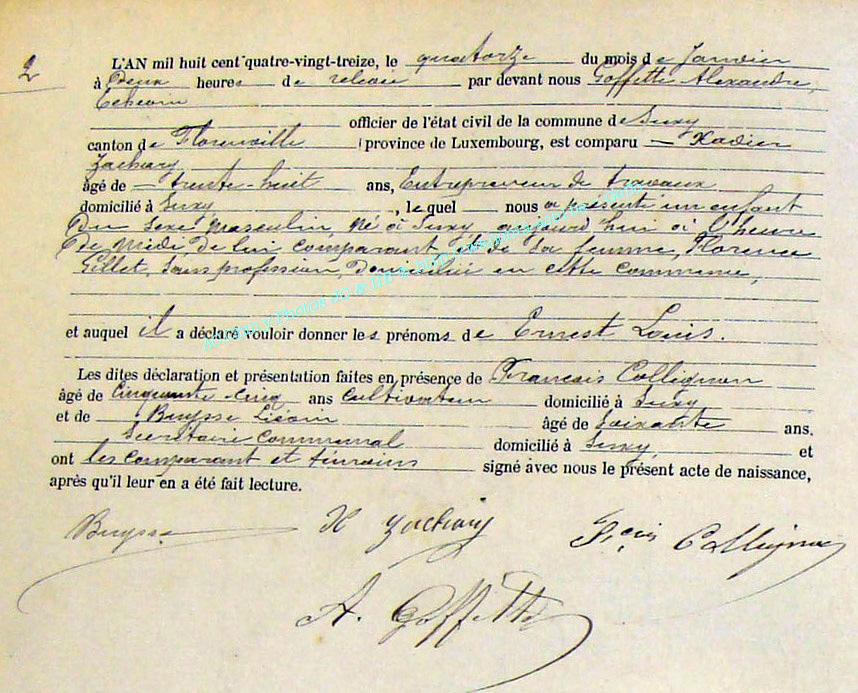 2
L'AN mil huit cent quatre-vingt-treize, le quatorze du mois de Janvier
à deux heures de relevée par devant nous Goffette Alexandre,
Echevin
officier de l'état civil de la commune de Suxy
canton de Florenville province de Luxembourg, est comparu Xavier
Zachary
âgé de trente-huit ans, Entrepreneur de travaux
domicilié à Suxy, lequel nous a présenté un enfant
du sexe masculin, né à Suxy aujourd'hui à l'heure
de midi, de lui comparant et de sa femme, Florence
Gillet, sans profession, domiciliée en cette commune,
et auquel il a déclaré vouloir donner les prénoms de Ernest Louis.
Les dites déclaration et présentation faites en présence de François Collignon
âgé de Cinquante-cinq ans cultivateur domicilié à Suxy
et de Buysse âgé de Soixante ans.
Secrétaire communal domicilié à Suxy, et
ont les comparant et témoins signé avec nous le présent acte de naissance,
après qu'il leur en a été fait lecture.
Buysse X Zachary Fçois Collignon
A. Goffette